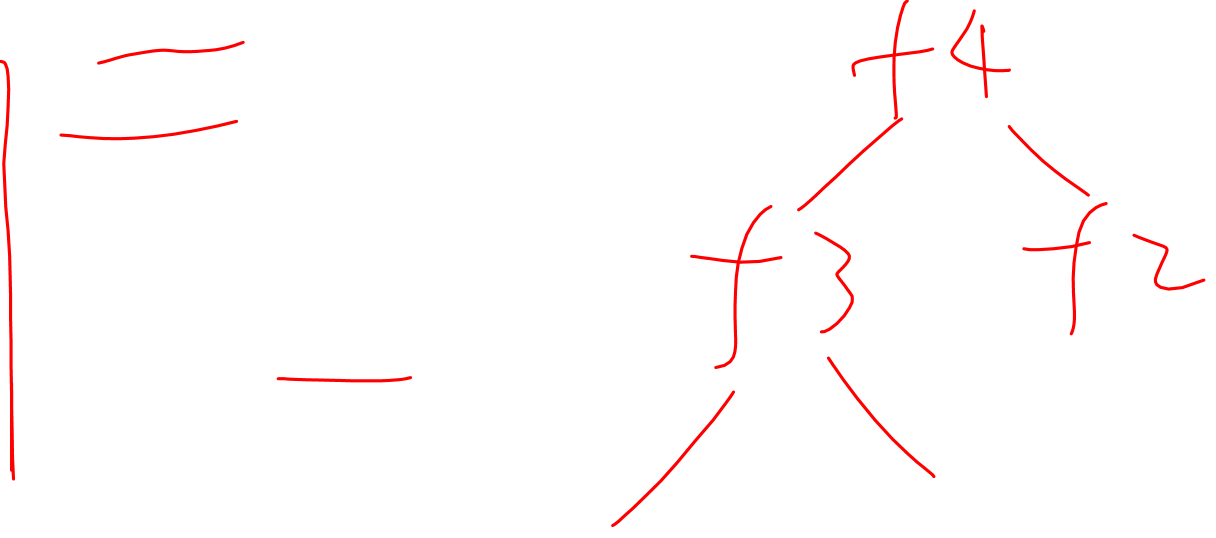 f4
f3 f2